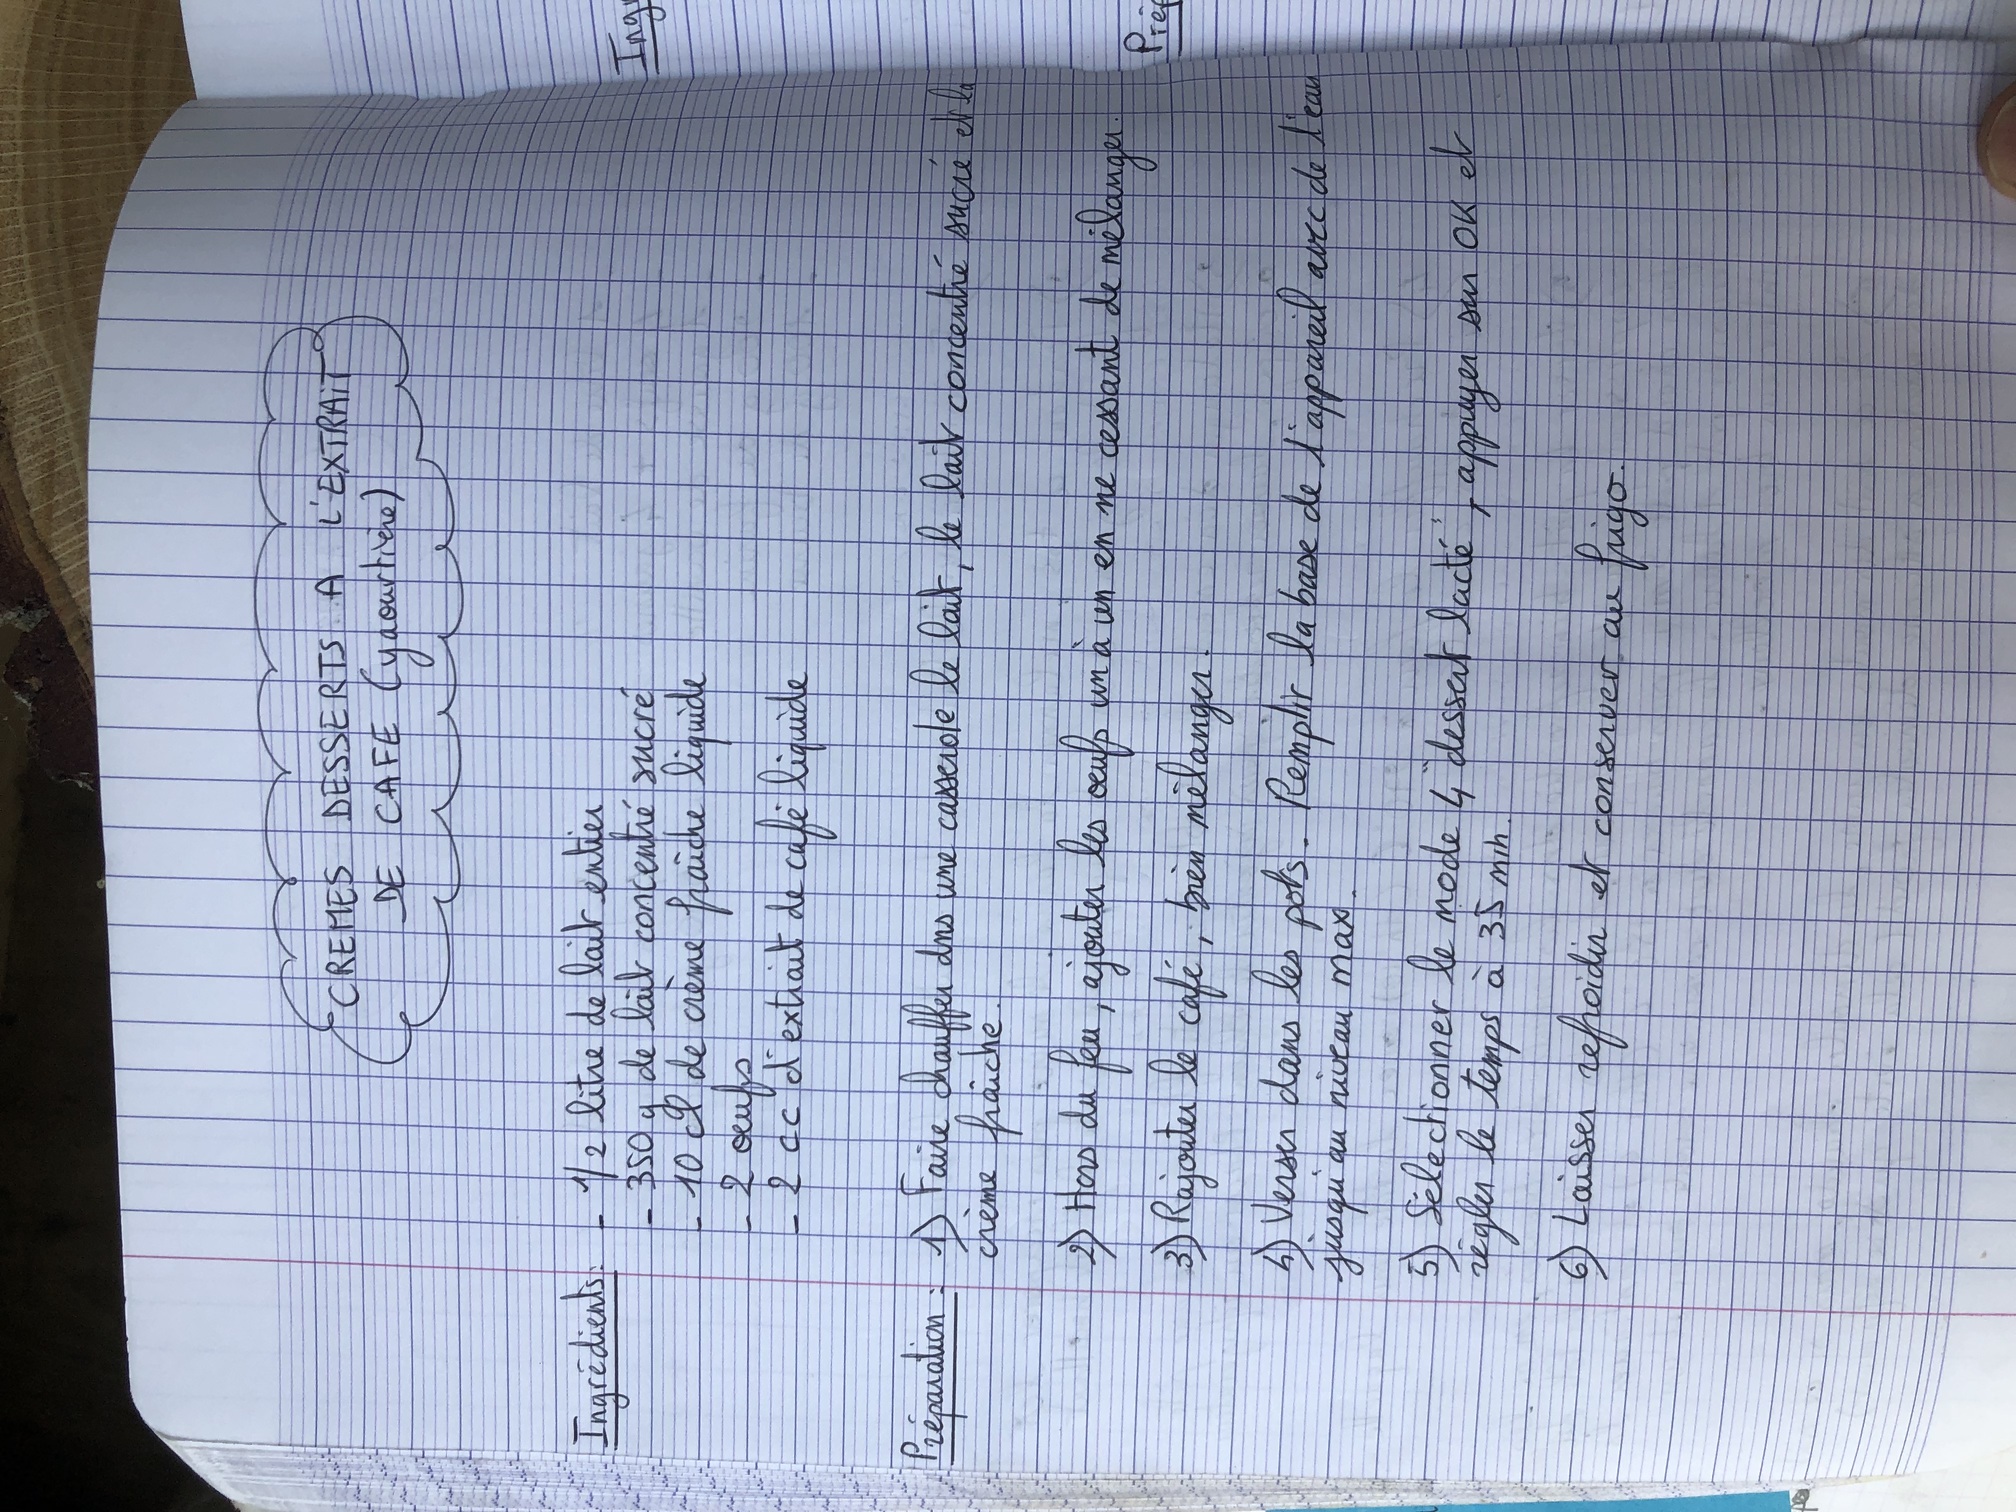 CREMES DESSERTS A L'EXTRAIT
DE CAFE (yaourtière)
Ingrédients: - 1/2 litre de lait entier
- 350 g de lait concentré sucré
- 10 cl de crème fraîche liquide
- 2 oeufs
- 2 cc d'extrait de café liquide
Préparation: 1) Faire chauffer dns une casserole le lait, le lait concentré sucré et la
crème fraîche.
2) Hors du feu, ajouter les oeufs un à un en ne cessant de mélanger.
3) Rajouter le café, bien mélanger.
4) Verser dans les pots. Remplir la base de l'appareil avec de l'eau
jusqu'au niveau max.
5) Sélectionner le mode 4 "dessert lacté", appuyer sur OK et
régler le temps à 35 min.
6) Laisser refroidir et conserver au frigo.
Ingr
Prép